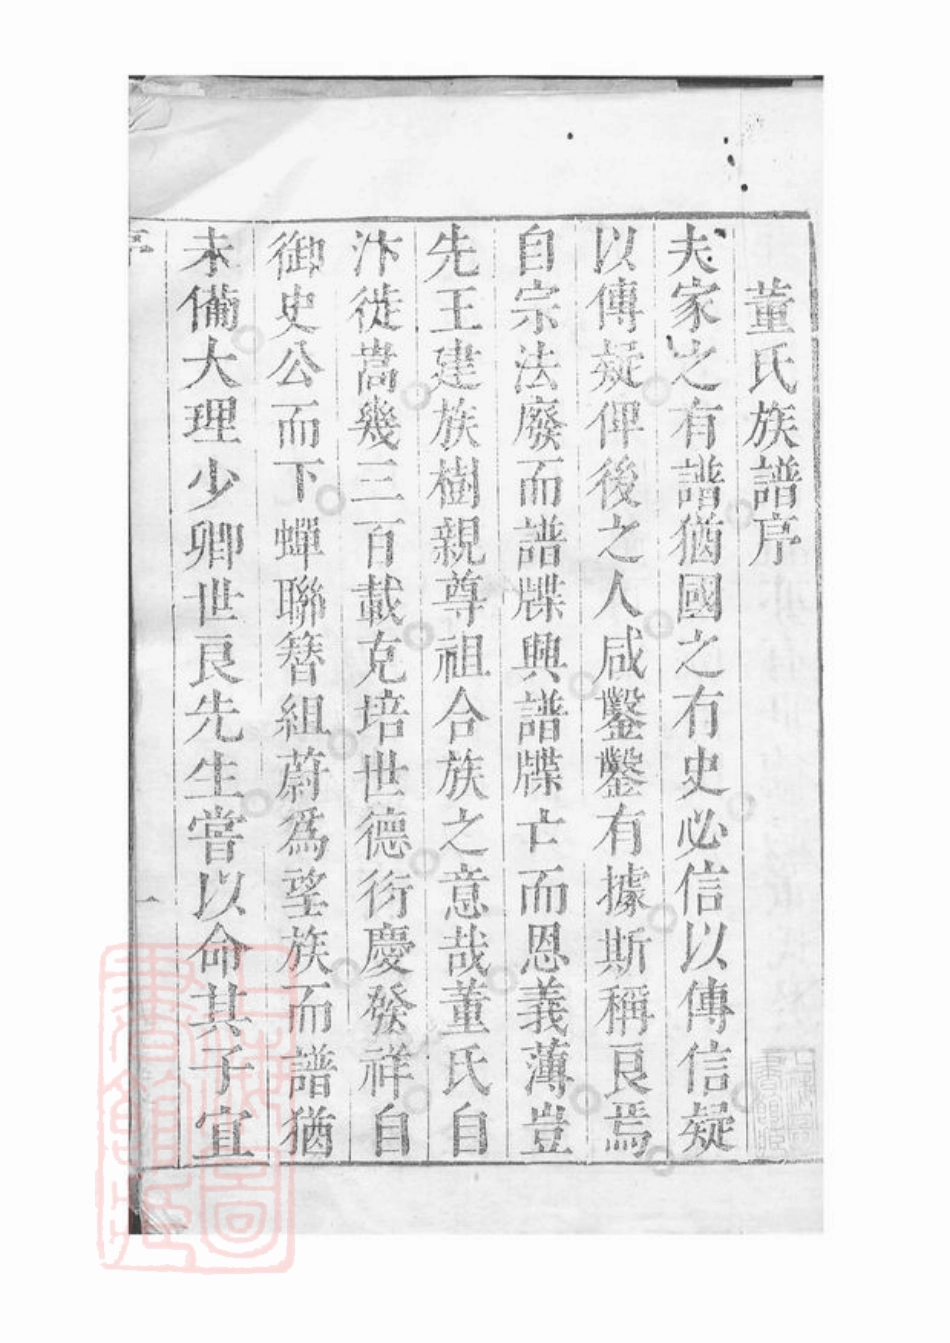 董氏族譜序
夫家之有譜猶國之有史必信以傳信疑
以傳疑俾後之人咸鑿鑿有據斯稱良焉
自宗法廢而譜牒興譜牒亡而恩義薄豈
先王建族樹親尊祖合族之意哉董氏自
汴徙嵩幾三百載克培世德衍慶發祥自
御史公而下蟬聯簪組蔚為望族而譜猶
未備大理少卿世良先生嘗以命其子宜
序
一